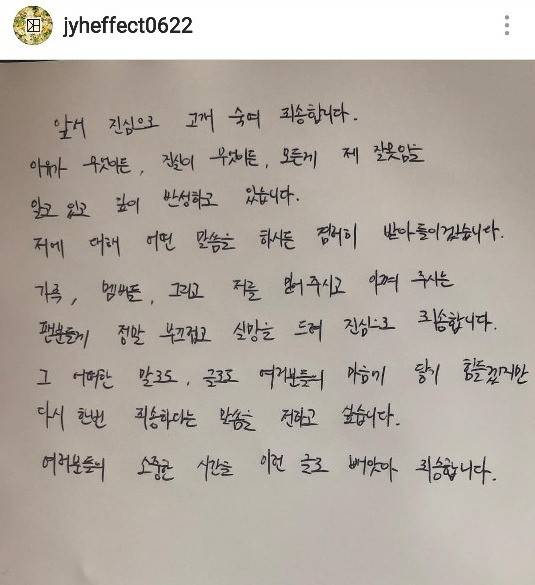 jyheffect0622
앞서 진심으로 고개 숙여 죄송합니다.
이유가 무엇이든, 진실이 무엇이든, 모든게 제 잘못임을
알고 있고 깊이 반성하고 있습니다.
저에 대해 어떤 말씀을 하시든 겸허히 받아들이겠습니다.
가족, 멤버들, 그리고 저를 믿어주시고 아껴 주시는
팬분들께 정말 부끄럽고 실망을 드려 진심으로 죄송합니다.
그 어떠한 말로도, 글로도 여러분들의 마음이 닿기 힘들겠지만
다시 한번 죄송하다는 말씀을 전하고 싶습니다.
여러분들의 소중한 시간을 이런 글로 빼앗아 죄송합니다.